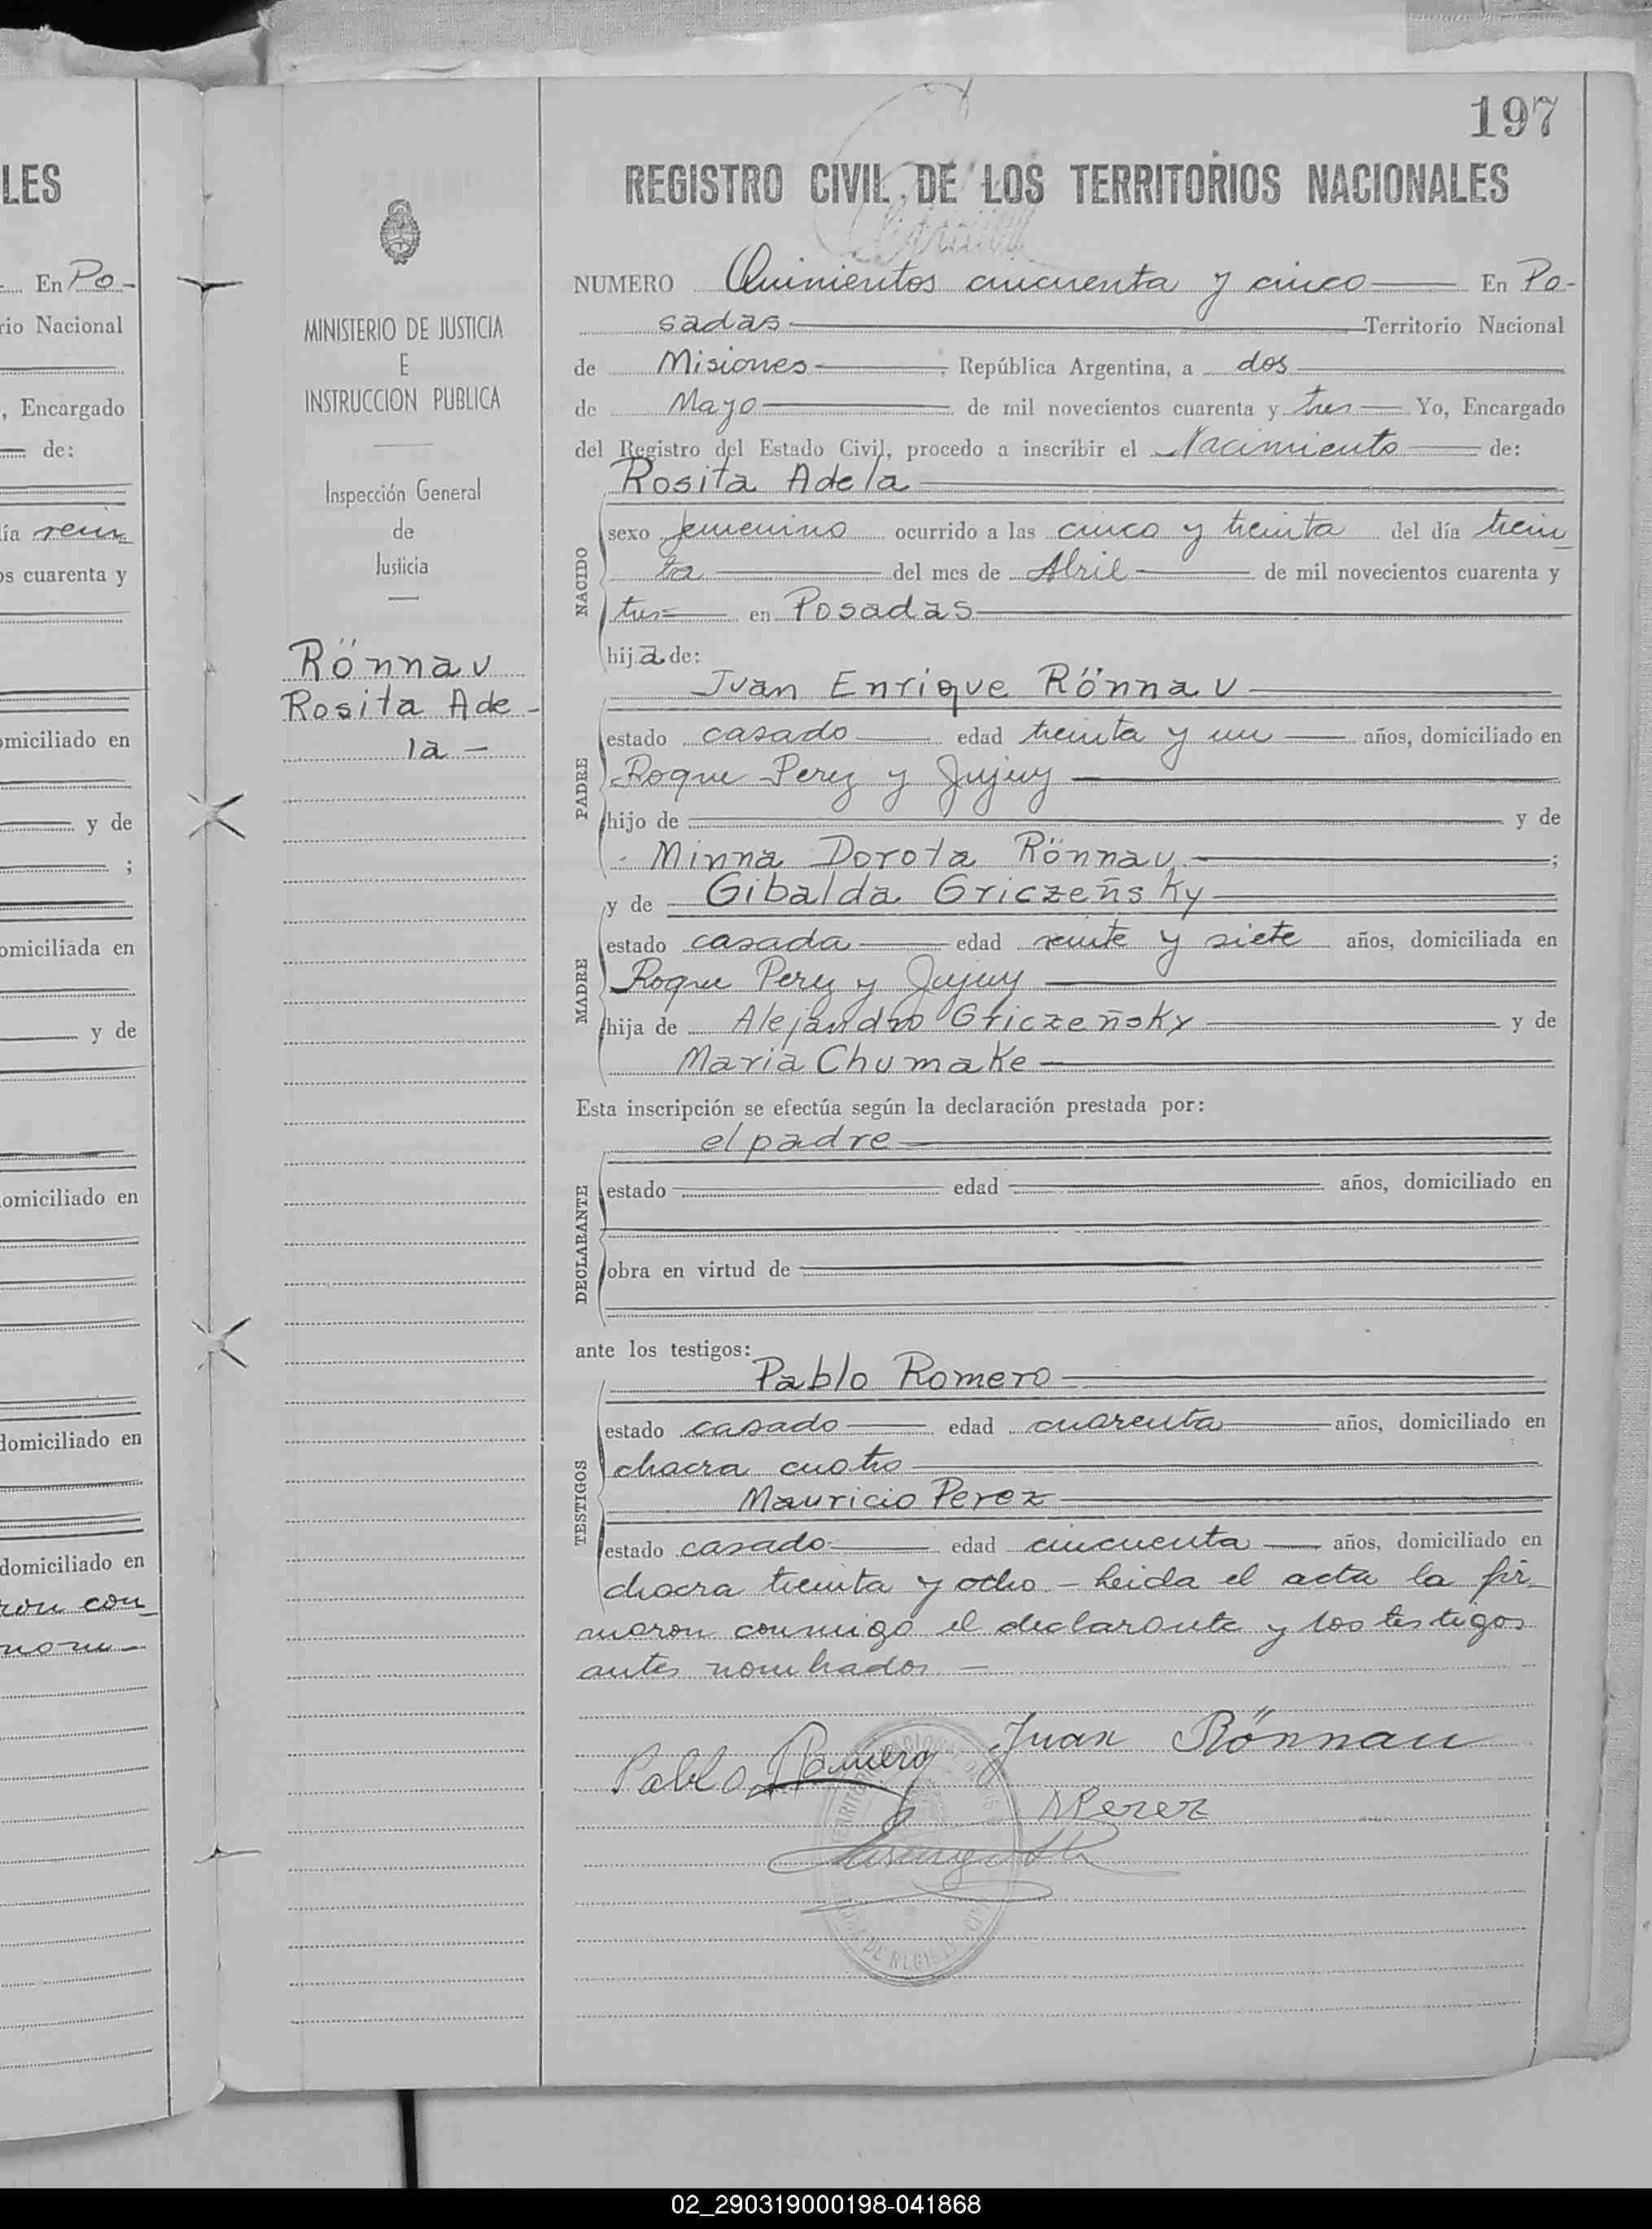 197
REGISTRO CIVIL DE LOS TERRITORIOS NACIONALES
MINISTERIO DE JUSTICIA
E
INSTRUCCION PUBLICA
Inspección General
de
Justicia
Rönnau
Rosita Ade-
la-
NUMERO Quinientos cincuenta y cinco En Po-
sadas Territorio Nacional
de Misiones, República Argentina, a dos
de Mayo de mil novecientos cuarenta y tres Yo, Encargado
del Registro del Estado Civil, procedo a inscribir el Nacimiento de:
Rosita Adela
NACIDO
sexo femenino ocurrido a las cinco y treinta del día trein-
ta del mes de Abril de mil novecientos cuarenta y
tres en Posadas
hija de:
Juan Enrique Rönnau
PADRE
estado casado edad treinta y un años, domiciliado en
Roque Perez y Jujuy
hijo de y de
Minna Dorota Rönnau ;
y de Gibalda Griczeñsky
MADRE
estado casada edad veinte y siete años, domiciliada en
Roque Perez y Jujuy
hija de Alejandro Griczeñsky y de
Maria Chumake
Esta inscripción se efectúa según la declaración prestada por:
el padre
DECLARANTE
estado edad años, domiciliado en
obra en virtud de
ante los testigos:
Pablo Romero
TESTIGOS
estado casado edad cuarenta años, domiciliado en
chacra cuatro
Mauricio Perez
estado casado edad cincuenta años, domiciliado en
chacra treinta y ocho - Leida el acta la fir-
maron conmigo el declarante y los testigos
antes nombrados -
Juan Rönnau
Pablo Romero
MPerez
LES
En Po-
rio Nacional
, Encargado
de:
ía vein-
os cuarenta y
omiciliado en
y de
;
omiciliada en
y de
omiciliado en
domiciliado en
domiciliado en
ron con-
nom-
02_290319000198-041868